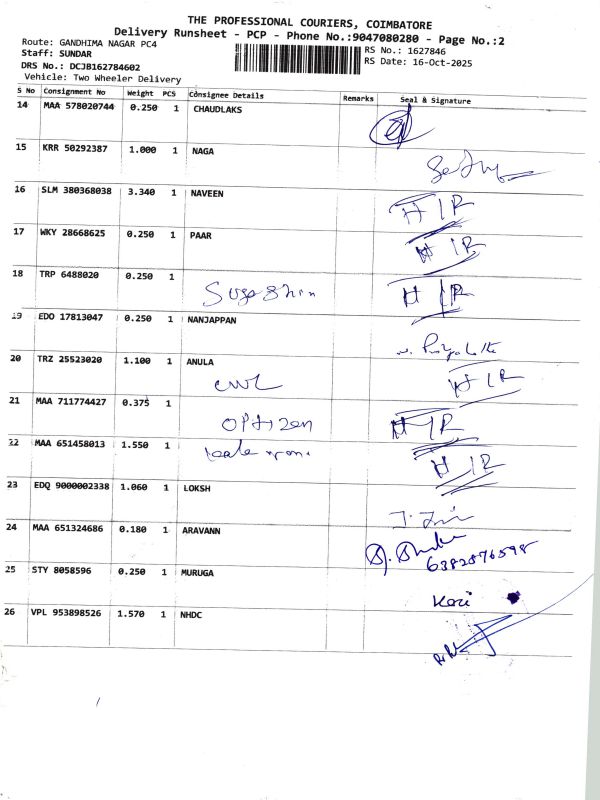 THE PROFESSIONAL COURIERS, COIMBATORE
Delivery Runsheet - PCP - Phone No.:9047080280 - Page No.:2
Route: GANDHIMA NAGAR PC4
RS No.: 1627846
Staff: SUNDAR
RS Date: 16-Oct-2025
DRS No.: DCJB162784602
Vehicle: Two Wheeler Delivery
S No Consignment No Weight PCS Consignee Details Remarks Seal & Signature
14 MAA 578020744 0.250 1 CHAUDLAKS
15 KRR 50292387 1.000 1 NAGA
16 SLM 380368038 3.340 1 NAVEEN H I R
17 WKY 28668625 0.250 1 PAAR H I R
18 TRP 6488020 0.250 1 H I R
19 EDO 17813047 0.250 1 NANJAPPAN
20 TRZ 25523020 1.100 1 ANULA H I R
21 MAA 711774427 0.375 1 OPtizen H I R
22 MAA 651458013 1.550 1 H I R
23 EDQ 9000002338 1.060 1 LOKSH
24 MAA 651324686 0.180 1 ARAVANN
6382876598
25 STY 8058596 0.250 1 MURUGA
26 VPL 953898526 1.570 1 NHDC